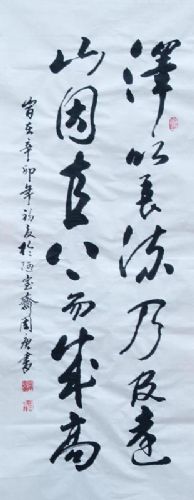 澤以長流乃及遠
山因直上而成高
在辛卯年初夏於陋室齋周書